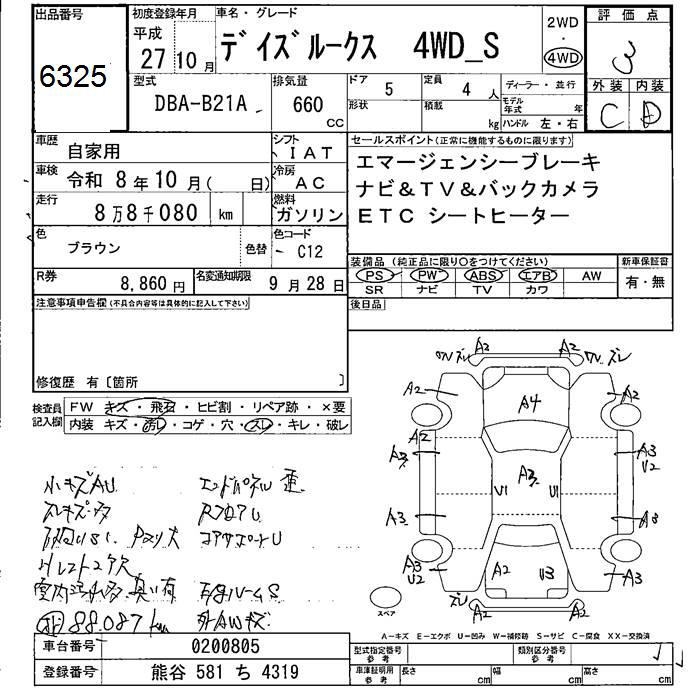 出品番号
6325
初度登録年月
平成
27 10月
車名・グレード
デイズルークス 4WD_S
2WD
・
4WD
評価点
3
外装 内装
C D
型式
DBA-B21A
排気量
660
CC
ドア
5
形状
定員
4 人
積載
kg
ディーラー・並行
モデル年式 年
ハンドル 左・右
車歴
自家用
シフト
IAT
車検
令和 8年10月( 日)
冷房
AC
走行
8万8千080 km
燃料
ガソリン
色
ブラウン
色替
色コード
C12
R券
8,860円
名変通知期限
9月28日
セールスポイント(正常に機能するものに限ります)
エマージェンシーブレーキ
ナビ&TV&バックカメラ
ETC シートヒーター
装備品(純正品に限り○をつけてください)
新車保証書
PS PW ABS エアB AW
SR ナビ TV カワ
有・無
後日品
注意事項申告欄(不具合内容等は具体的に記入して下さい)
修復歴 有〔箇所 〕
検査員記入欄
FW キズ・飛石・ヒビ割・リペア跡・×要
内装 キズ・汚レ・コゲ・穴・スレ・キレ・破レ
小キズAU
88.087km
A2 A2
A2 A4 A2
A2
A3 A3 A3
U2
U1 U1
A3 A3
A3 A2 U3 A3
U2
ズレ A2 A2
スペア
A-キズ E-エクボ U-凹み W-補修跡 S-サビ C-腐食 XX-交換済
車台番号
0200805
登録番号
熊谷 581 ち 4319
型式指定番号
参考
類別区分番号
参考
車庫証明用
参考
長さ cm
幅 cm
高さ cm